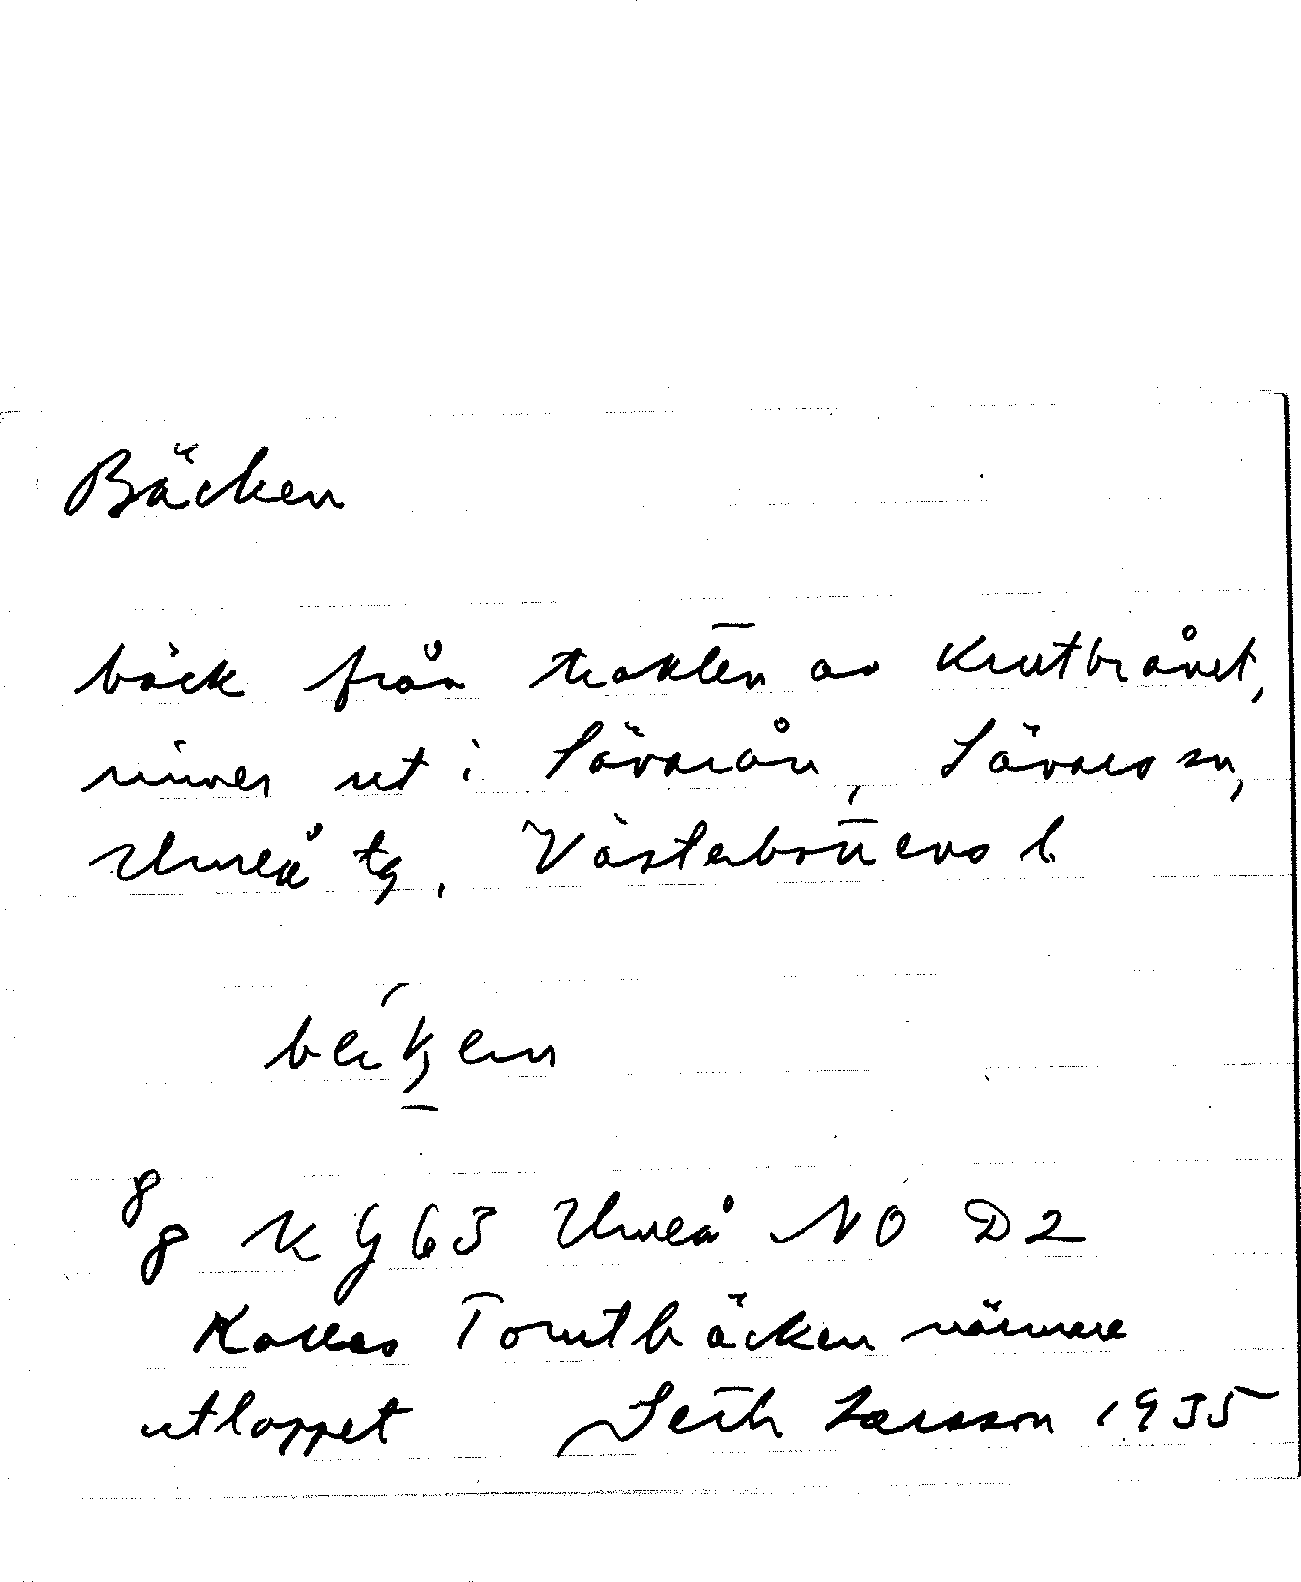 Bäcken
bäck från trakten av Krutbrånet,
rinner ut i Sävarån, Sävars sn,
Umeå tg, Västerbottens l
K G 63 Umeå NO D2
Kallas Tomtbäcken närmare
utloppet Seth Larsson 1935